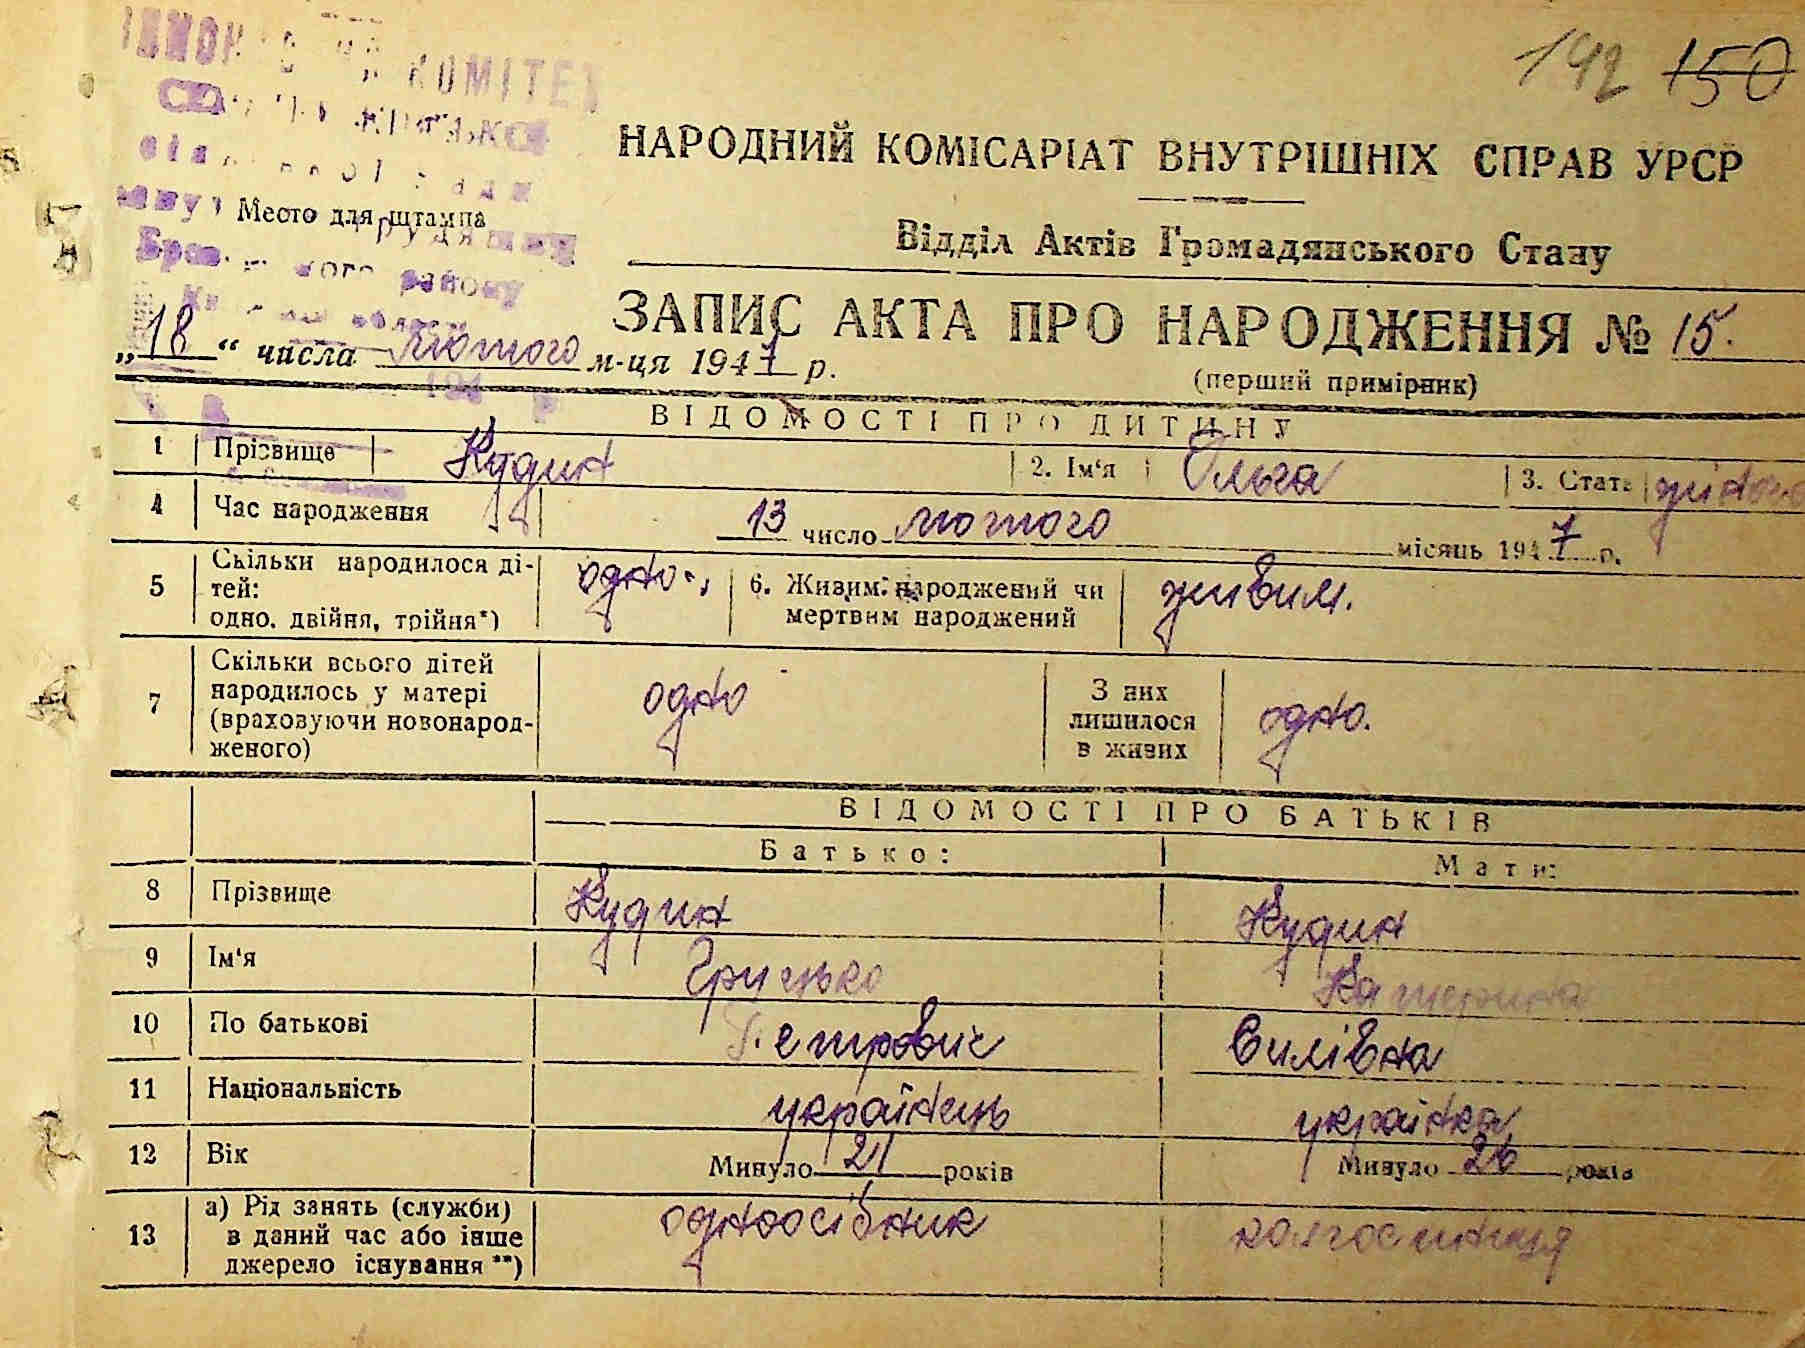 192 150
КОМІТЕТ
НАРОДНИЙ КОМІСАРІАТ ВНУТРІШНІХ СПРАВ УРСР
Место для штампа
Відділ Актів Громадянського Стану
району
ЗАПИС АКТА ПРО НАРОДЖЕННЯ № 15.
„18“ числа лютого м-ця 1947 р.
(перший примірник)
194 р
ВІДОМОСТІ ПРО ДИТИНУ
1 Прізвище Кудин 2. Ім'я Ольга 3. Стать жіноча
4 Час народження 13 число лютого місяць 1947 р.
5 Скільки народилося ді-
тей:
одно, двійня, трійня*) одно., 6. Живим народжений чи
мертвим народжений живим.
7 Скільки всього дітей
народилось у матері
(враховуючи новонарод-
женого) одно З них
лишилося
в живих одно.
ВІДОМОСТІ ПРО БАТЬКІВ
Батько: Мати:
8 Прізвище Кудин Кудин
9 Ім'я Грицько Катерина
10 По батькові Петрович Силівна
11 Національність українець українка
12 Вік Минуло 21 років Минуло 26 років
13 а) Рід занять (служби)
в даний час або інше
джерело існування **) одноосібник колгоспниця